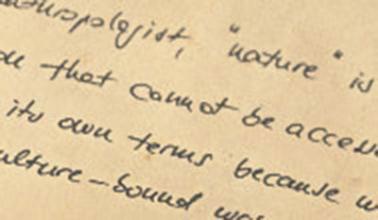 anthropologist, "nature" is
that cannot be access
its own terms because
culture-bound